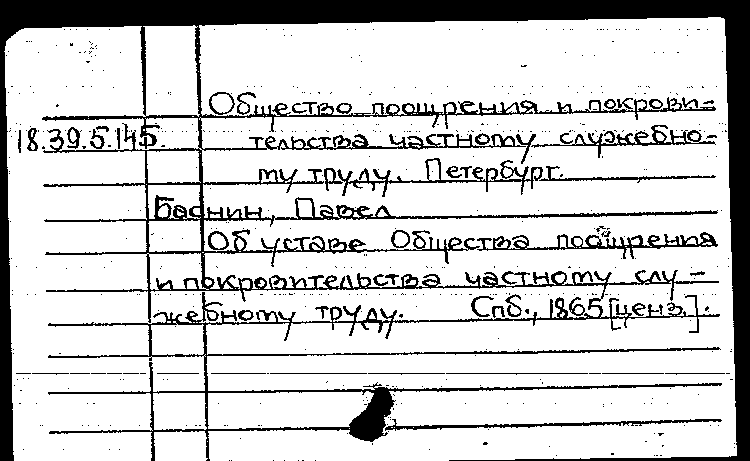 Общество поощрения и покрови-
18.39.5.145 тельства частному служебно-
му труду. Петербург.
Баснин, Павел
Об уставе Общества поощрения
и покровительства частному слу-
жебному труду. Спб., 1865 [ценз.].